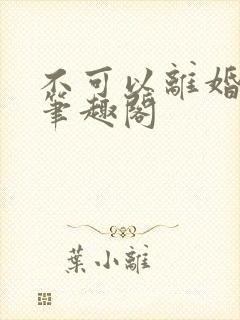 不可以離婚
筆趣閣
葉小離